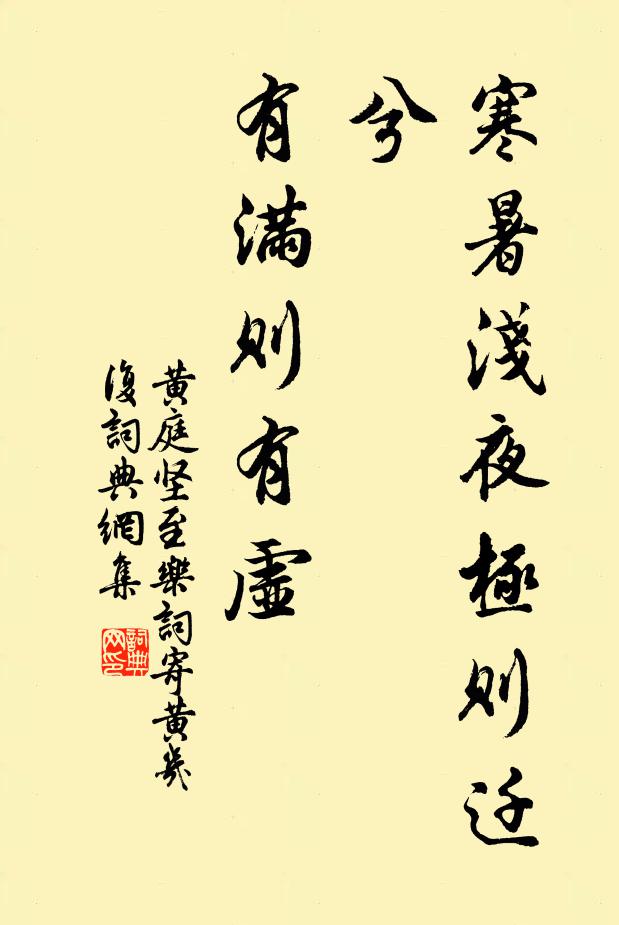 寒暑淺夜極則迁
兮
有満則有虛
黄庭坚至樂詞寄黄幾
復詞典網集
詞典网印